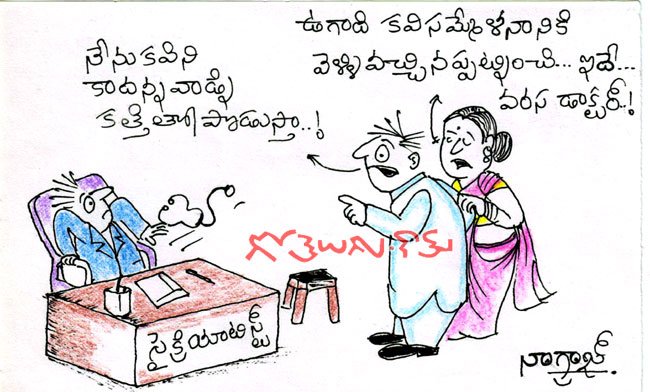 నేను కవిని
కాదన్నవాడ్ని
కత్తితో పొడుస్తా..!
ఉగాది కవిసమ్మేళనానికి
వెళ్ళివచ్చినప్పట్నించి... ఇదే...
వరస డాక్టర్..!
గోతెలుగు.కామ్
సైక్రియాటిస్ట్
నాగ్రాజ్.